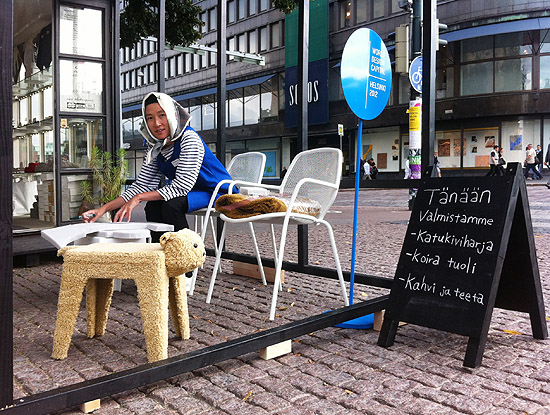 WORLD
DESIGN
CAPITAL
HELSINKI
2012
Tänään
Valmistamme
-Katukiviharja
-Koira tuoli
-Kahvi ja teetä